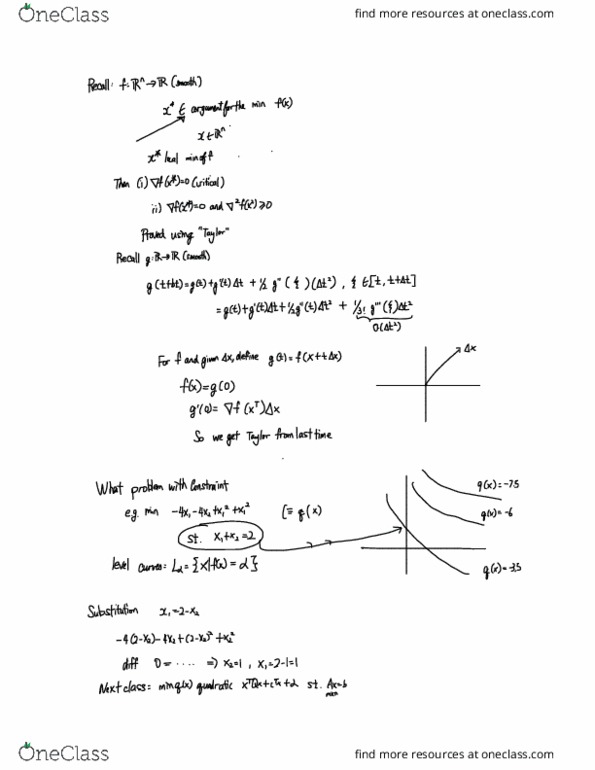 OneClass
find more resources at oneclass.com
Recall: f: ℝⁿ→ℝ (smooth)
x* ∈ argument for the min f(x)
x∈ℝⁿ
x* local min of f
Then (i) ∇f(x*)=0 (critical)
ii) ∇f(x*)=0 and ∇²f(x*)≥0
Proved using "Taylor"
Recall g: ℝ→ℝ (smooth)
g(t+Δt)=g(t)+g'(t)Δt + ½ g''(ξ)(Δt²), ξ∈[t, t+Δt]
=g(t)+g'(t)Δt+½g''(t)Δt² + 1/3! g'''(ξ)Δt²
O(Δt²)
For f and given Δx, define g(t)=f(x+tΔx)
Δx
f(x)=g(0)
g'(0)= ∇f(xᵀ)Δx
So we get Taylor from last time
What problem with constraint
q(x)=-7.5
e.g. min -4x₁-4x₂+x₁²+x₁² (≡ q(x)
q(x)=-6
st. x₁+x₂=2
level curves: L𝛼={x|f(x)=α}
q(x)=-3.5
Substitution x₁=2-x₂
-4(2-x₂)-4x₂+(2-x₂)²+x₂²
diff 0=.... => x₂=1, x₁=2-1=1
Next class: min q(x) quadratic xᵀQx+cᵀx+α st. Ax=b
OneClass
find more resources at oneclass.com